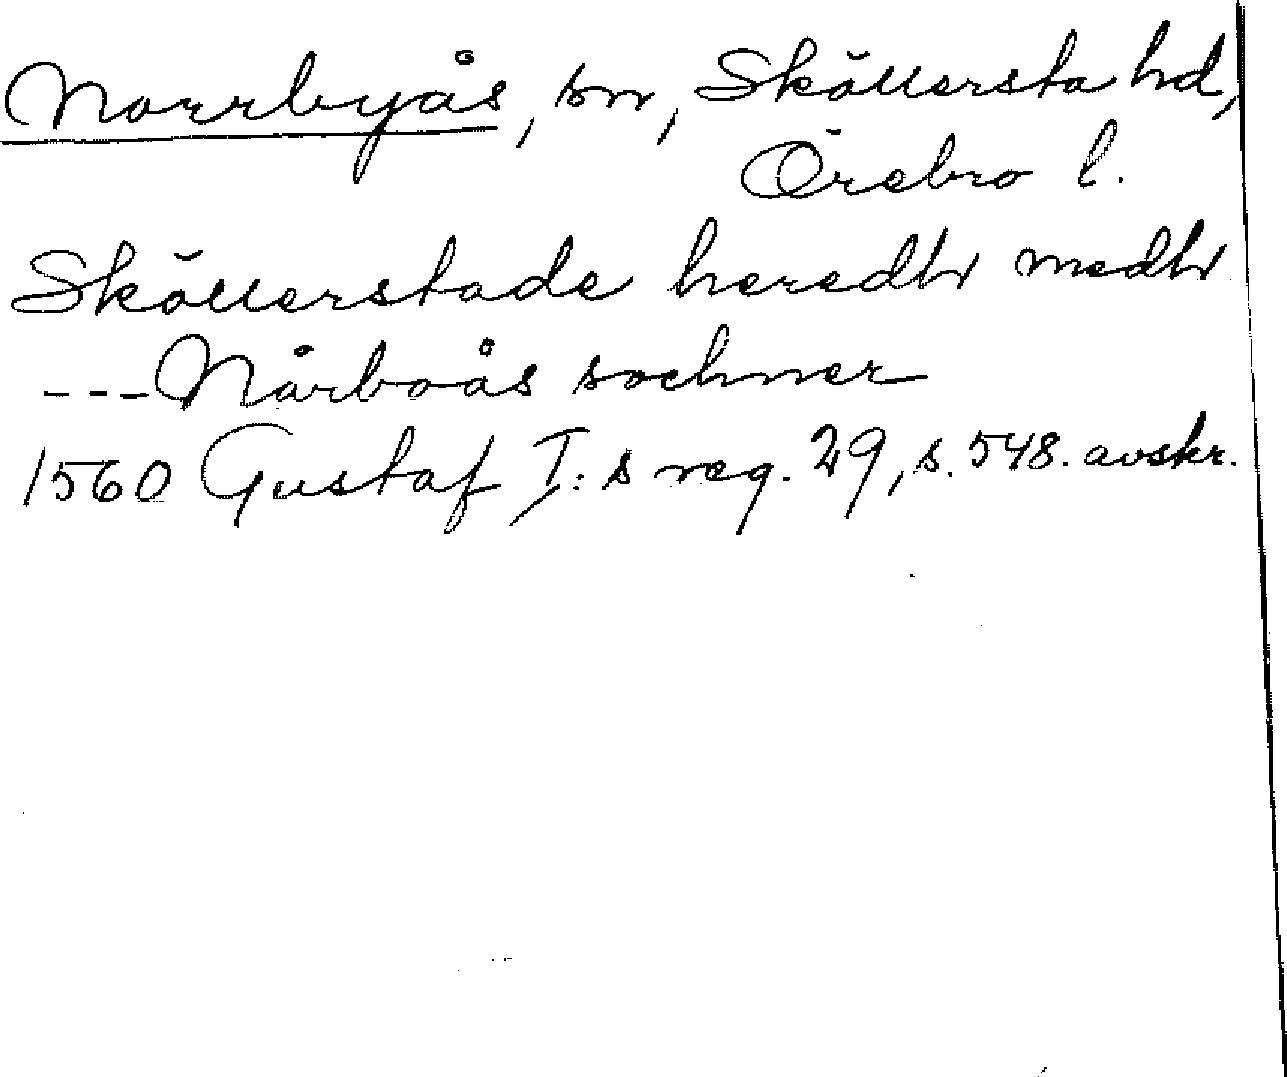 Norrbyås, sn, Sköllersta hd,
Örebro l.
Sköllerstade heredh medh
---Nårboås sochner
1560 Gustaf I:s reg. 29, s. 548. avskr.